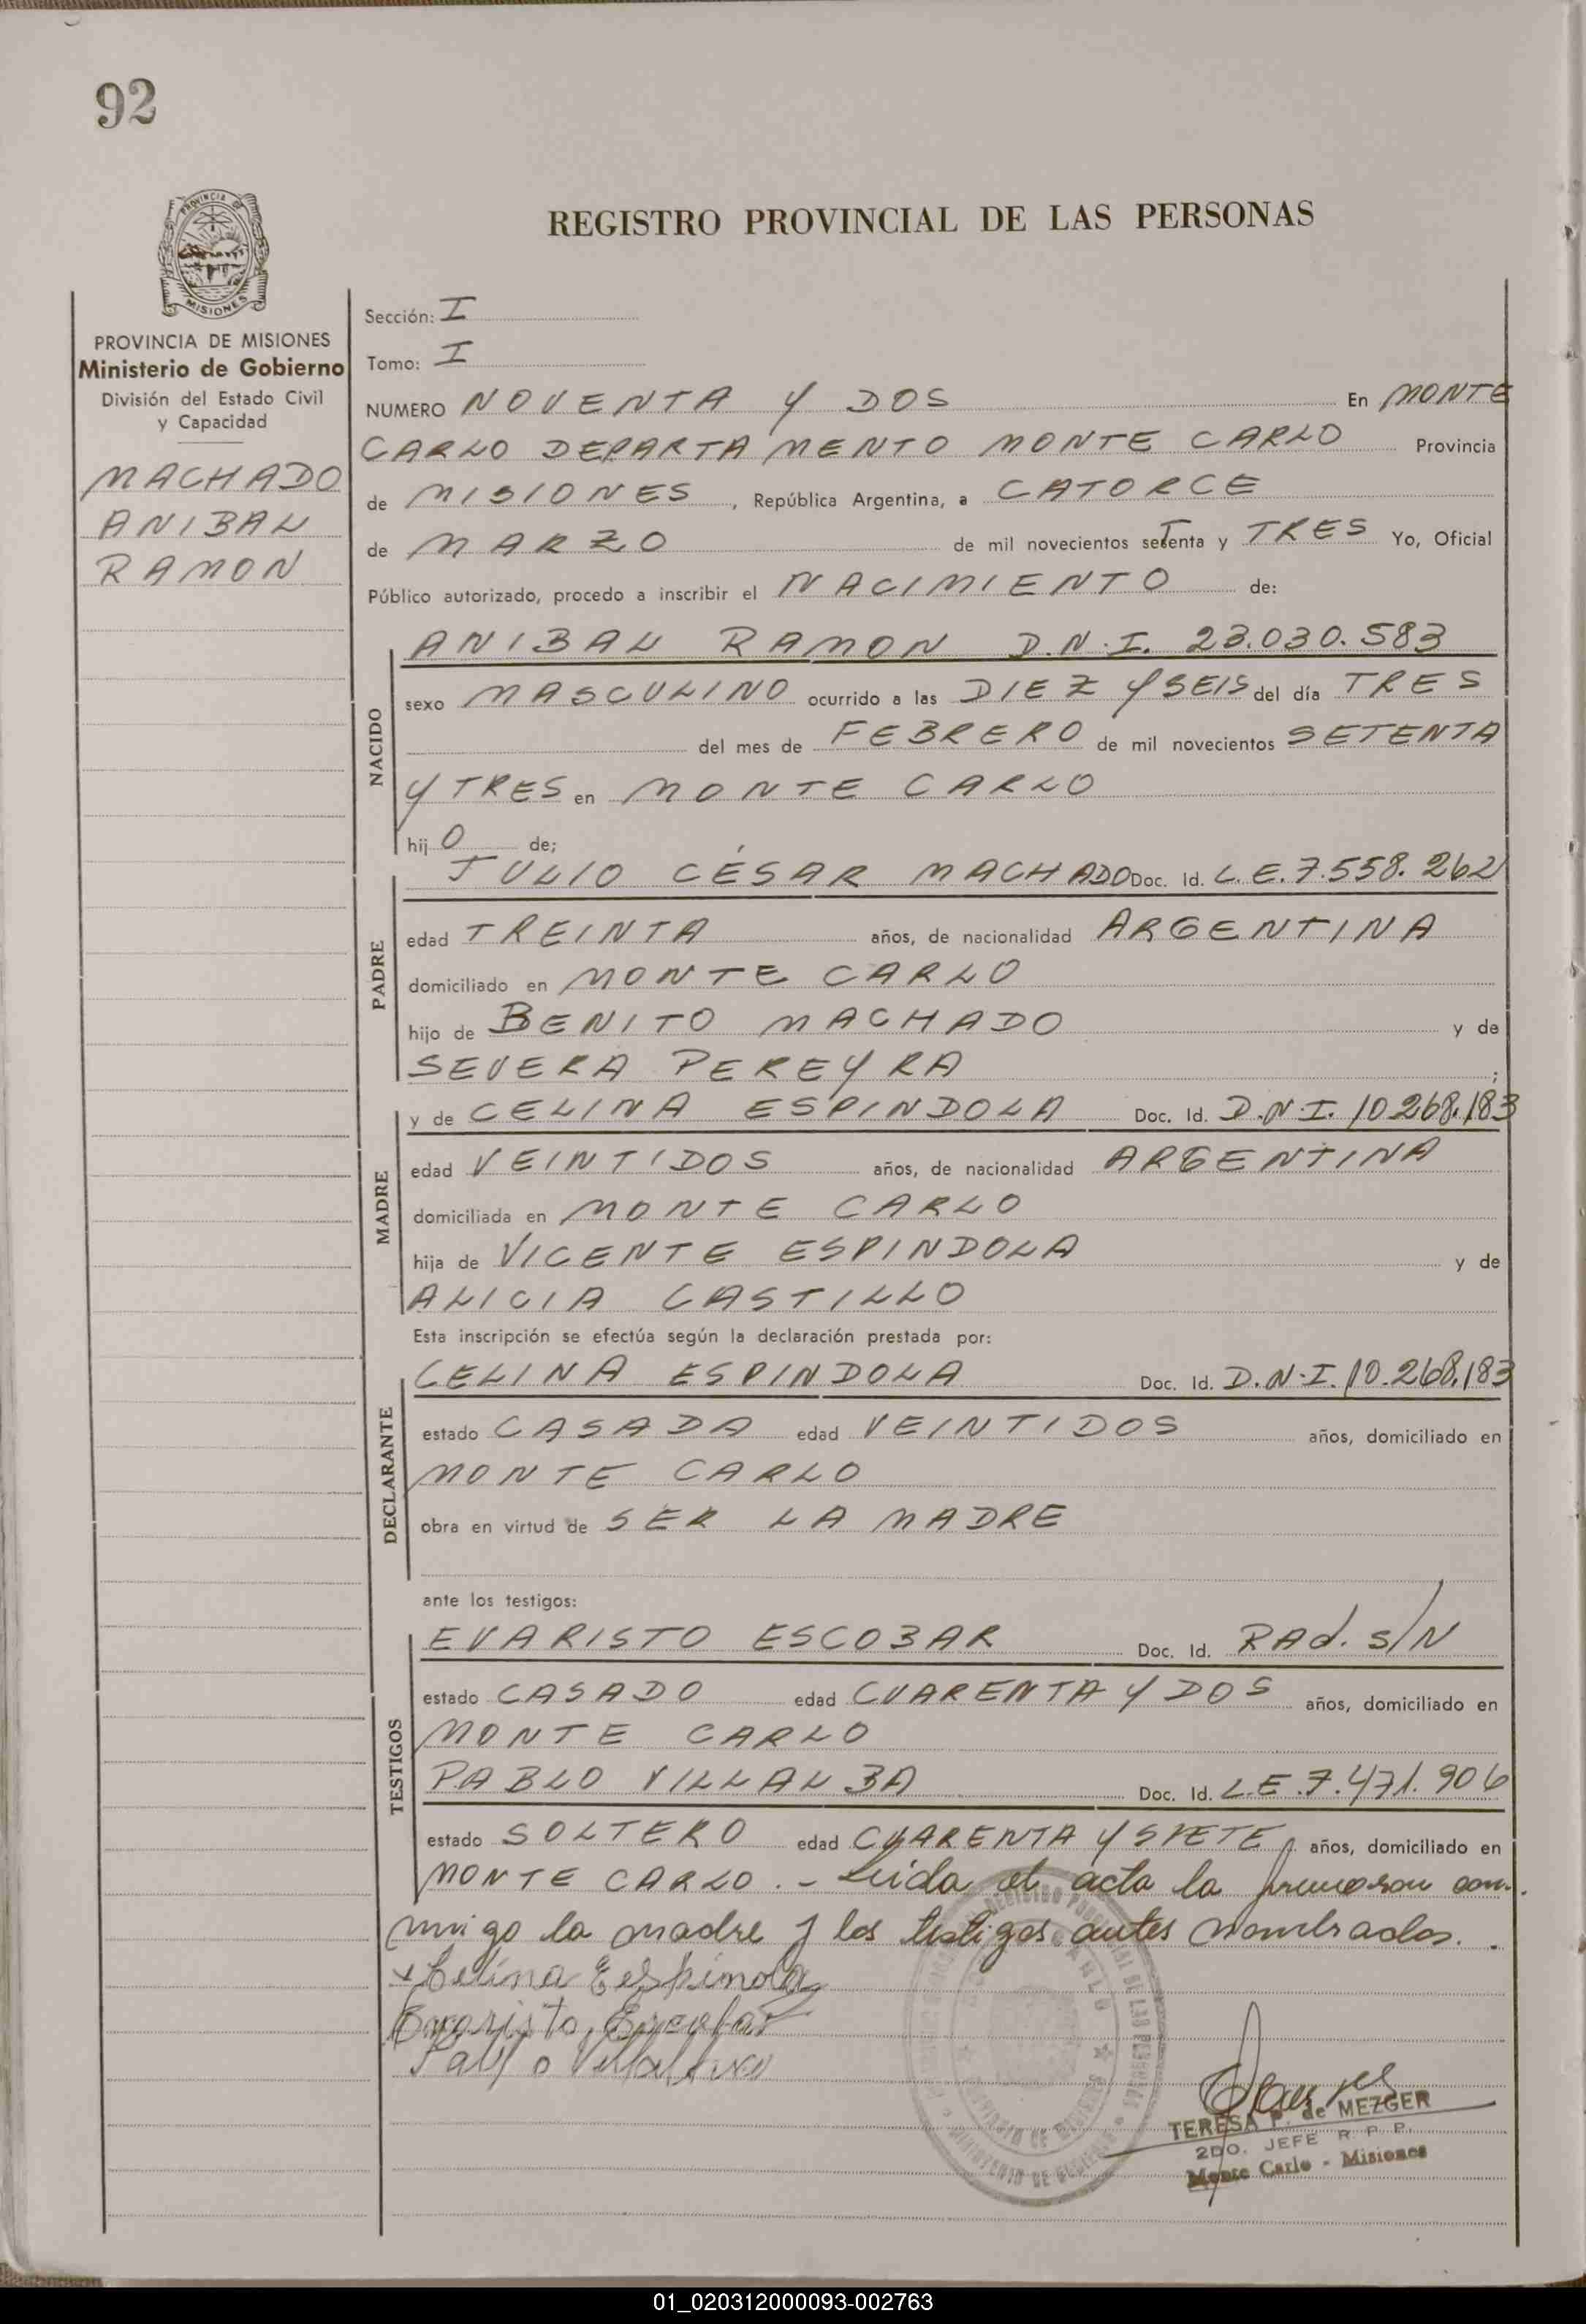 92
REGISTRO PROVINCIAL DE LAS PERSONAS
PROVINCIA DE
MISIONES
PROVINCIA DE MISIONES
Ministerio de Gobierno
División del Estado Civil
y Capacidad
MACHADO
ANIBAL
RAMON
Sección: I
Tomo: I
NUMERO NOVENTA Y DOS En MONTE
CARLO DEPARTAMENTO MONTE CARLO Provincia
de MISIONES, República Argentina, a CATORCE
de MARZO de mil novecientos setenta y TRES Yo, Oficial
Público autorizado, procedo a inscribir el NACIMIENTO de:
NACIDO
ANIBAL RAMON D.N.I. 23.030.583
sexo MASCULINO ocurrido a las DIEZ Y SEIS del día TRES
del mes de FEBRERO de mil novecientos SETENTA
Y TRES en MONTE CARLO
hijO de;
PADRE
JULIO CÉSAR MACHADO Doc. Id. L.E. 7.558.262
edad TREINTA años, de nacionalidad ARGENTINA
domiciliado en MONTE CARLO
hijo de BENITO MACHADO y de
SEVERA PEREYRA ;
MADRE
y de CELINA ESPINDOLA Doc. Id. D.N.I. 10.268.183
edad VEINTIDOS años, de nacionalidad ARGENTINA
domiciliada en MONTE CARLO
hija de VICENTE ESPINDOLA y de
ALICIA CASTILLO
Esta inscripción se efectúa según la declaración prestada por:
DECLARANTE
CELINA ESPINDOLA Doc. Id. D.N.I. 10.268.183
estado CASADA edad VEINTIDOS años, domiciliado en
MONTE CARLO
obra en virtud de SER LA MADRE
ante los testigos:
TESTIGOS
EVARISTO ESCOBAR Doc. Id. RAd. S/N
estado CASADO edad CUARENTA Y DOS años, domiciliado en
MONTE CARLO
PABLO VILLALBA Doc. Id. L.E. 7.471.906
estado SOLTERO edad CUARENTA Y SIETE años, domiciliado en
MONTE CARLO.- Leida el acta la firmaron con-
migo la madre y los testigos antes nombrados.
x Celina Eespinola
Evaristo Escobar
Pablo Villalba
TERESA P. de MEZGER
2DO. JEFE R. P. P.
Monte Carlo - Misiones
01_020312000093-002763